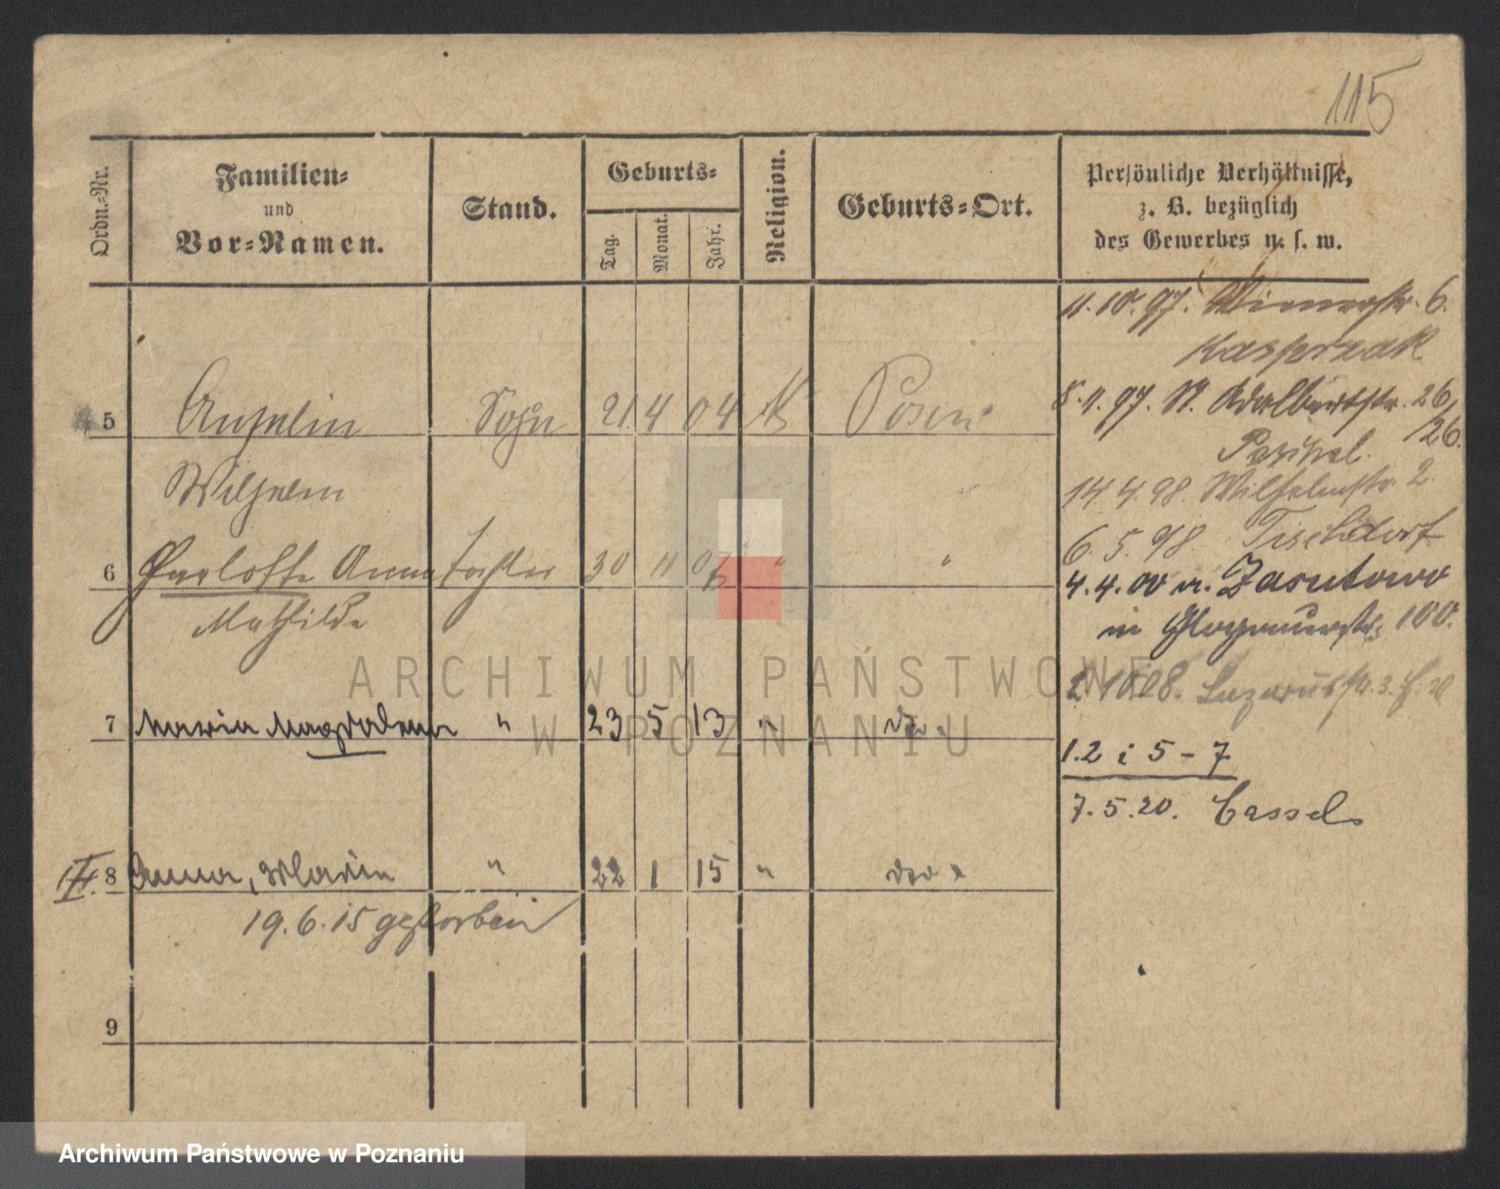 115
Ordn.-Nr.
Familien-
und
Vor-Namen.
Stand.
Geburts-
Tag.
Monat.
Jahr.
Religion.
Geburts-Ort.
Persönliche Verhältnisse,
z. B. bezüglich
des Gewerbes u. s. w.
11.10.97. Wienerstr. 6.
Kasperzak
5 Anselm Sohn 21 4 04 K Posen
8.1.97. St. Adalbertstr. 26/26.
Wilhelm
14.4.98. Wilhelmstr. 2.
6.5.98 Tischdorf
6 Charlotte Anna Tochter 30 11 05 " "
4.4.00 n. Zasutowo
Mathilde
in Glogauerstr. 100.
ARCHIWUM PAŃSTWOWE
2.10.08. Lazarusstr. 3.
7 Maria Magdalena " 23 5 13 " do.
W POZNANIU
1.2 i 5-7
7.5.20. Cassel.
8 Anna, Maria " 22 1 15 " do.
19.6.15 gestorben
9
Archiwum Państwowe w Poznaniu